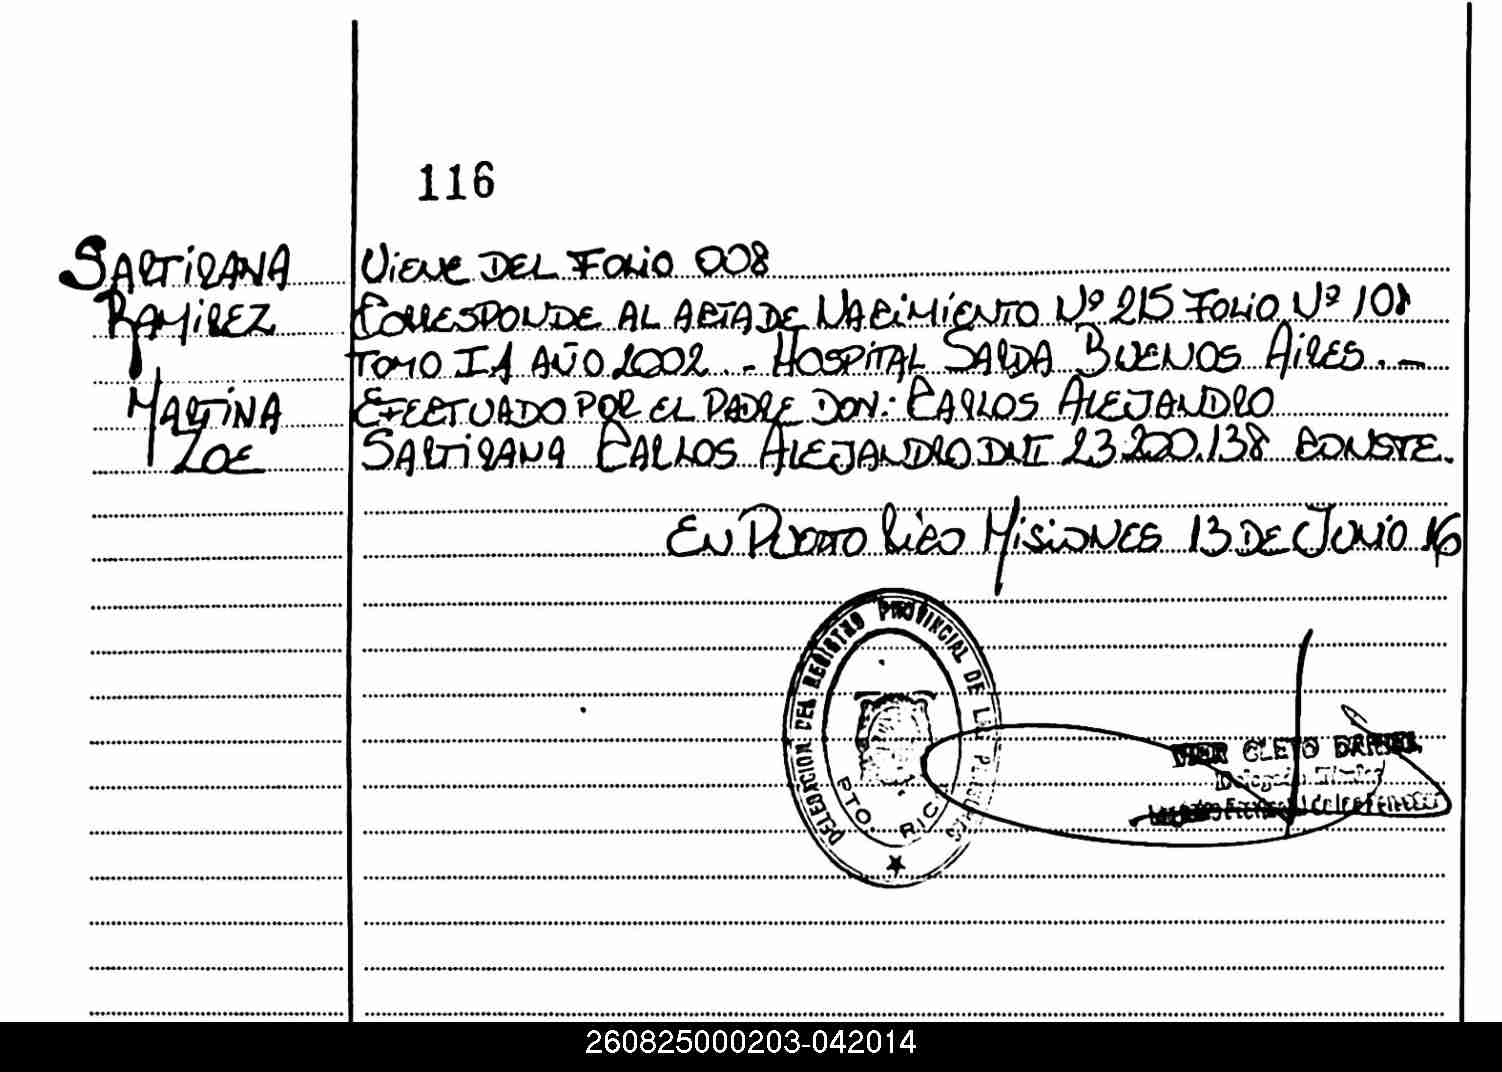 116
SARTIRANA
RAMIREZ
MARTINA
ZOE
VIENE DEL FOLIO 008
CORRESPONDE AL ACTA DE NACIMIENTO Nº 215 FOLIO Nº 108
TOMO I A AÑO 2002 .- HOSPITAL SARDA BUENOS AIRES . -
EFECTUADO POR EL PADRE DON: CARLOS ALEJANDRO
SARTIRANA CARLOS ALEJANDRO DNI 23.200.138 CONSTE.
EN PUERTO RICO MISIONES 13 DE JUNIO 16
DELEGACION DEL REGISTRO PROVINCIAL DE LAS PERSONAS
PTO. RICO
CLETO DANIEL
260825000203-042014